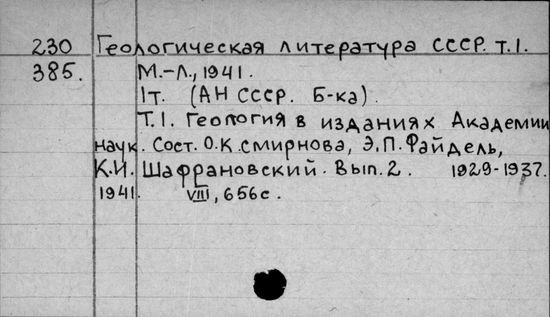 230 Геологическая литература СССР. т.1.
385. М.-Л., 1941.
1т. (АН СССР. Б-ка).
Т.1. Геология в изданиях Академии
наук. Сост. О.К. Смирнова, Э.П. Файдель,
К.И. Шафрановский. Вып. 2. 1929-1937.
1941. VIII, 656с.